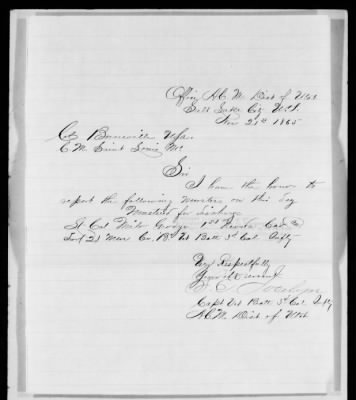 Office A.C.M. Dist of Utah
Salt Lake City U.T.
Nov 21st 1865
Col Bonneville USA
C.M. Saint Louis Mo
Sir
I have the honor to
report the following musters on this day
Mustered for discharge
Lt Col Milo George 1st Nevada Cav
and 23 men Co. B Vet Batt 3d Cal Infty
Very Respectfully
Your obt servant
S. E. Jocelyn
Capt Vet Batt 3d Cal Infty
A.C.M. Dist of Utah